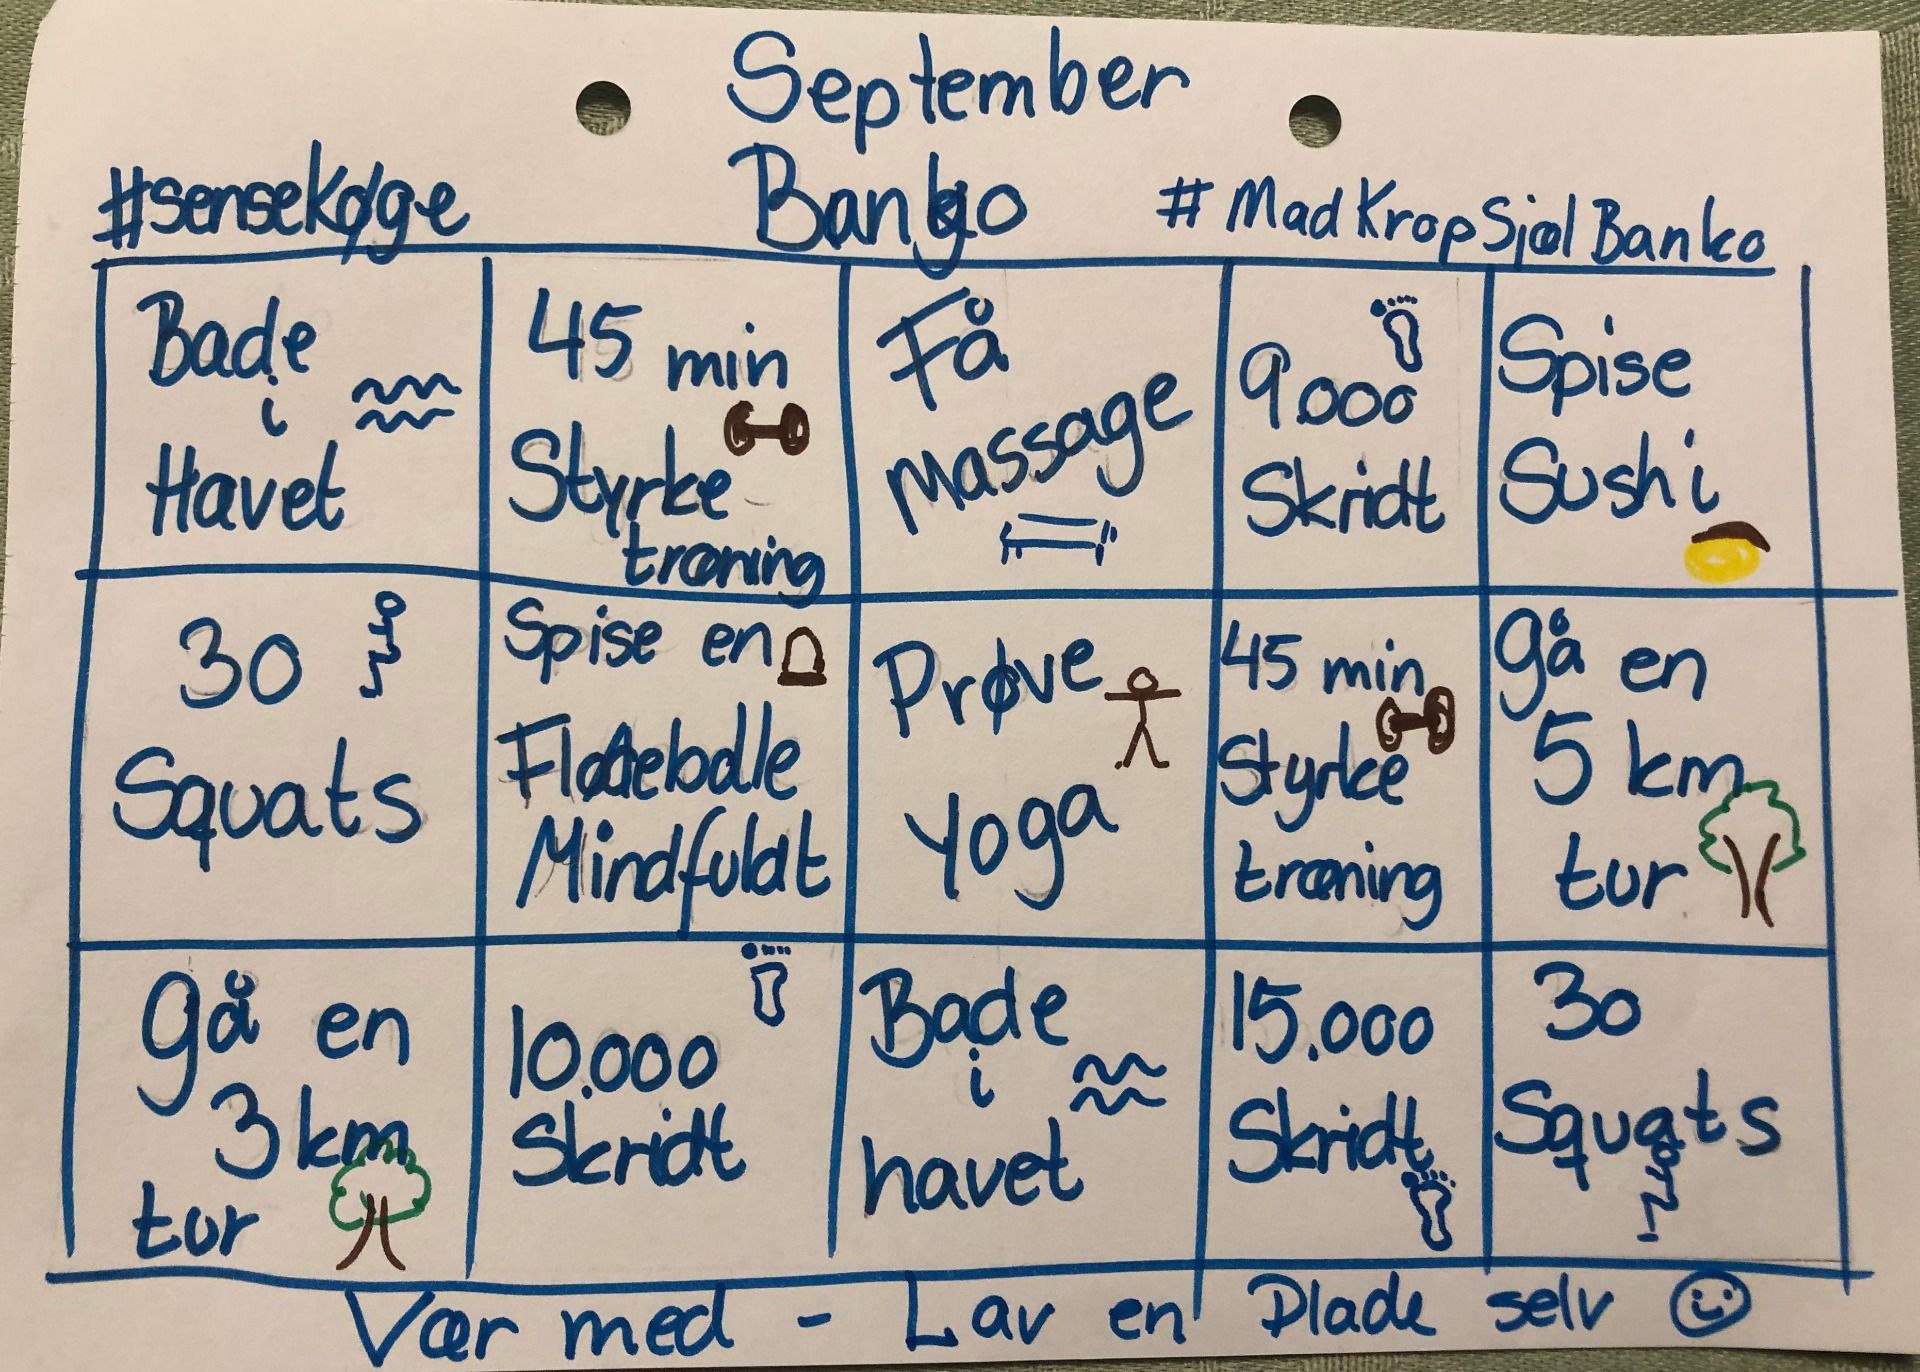 September
Banko
#senseKøge
#MadKropSjælBanko
Bade
i
Havet
45 min
Styrke
træning
Få
Massage
9.000
Skridt
Spise
Sushi
30
Squats
Spise en
Flødebolle
Mindfuldt
Prøve
Yoga
45 min
Styrke
træning
gå en
5 km
tur
gå en
3 km
tur
10.000
Skridt
Bade
i
havet
15.000
Skridt
30
Squats
Vær med - Lav en Plade selv